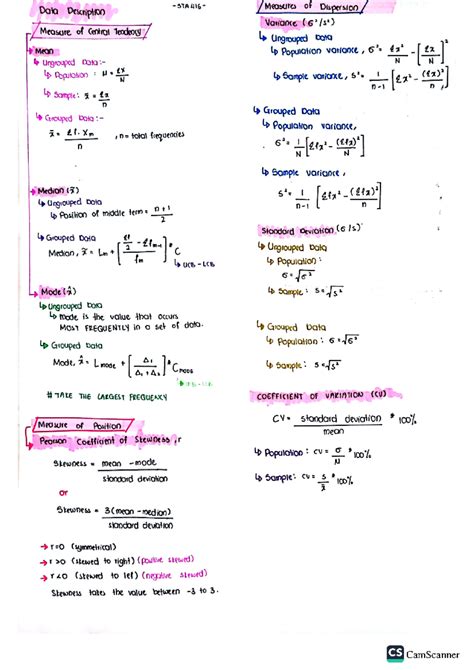 Data Description
-STA416-
Measure of Central Tendency
Mean
↳ Ungrouped Data :-
↳ Population : N = Σx / N
↳ Sample : x̄ = Σx / n
↳ Grouped Data :-
x̄ = Σf·Xm / n , n = total frequencies
Median (x̃)
↳ Ungrouped Data
↳ Position of middle term = n+1 / 2
↳ Grouped Data
Median, x̃ = Lm + [ Σf/2 - Σfm-1 / fm ] * C
↳ UCB - LCB
Mode (x̂)
↳ Ungrouped Data
↳ mode is the value that occurs
MOST FREQUENTLY in a set of data.
↳ Grouped Data
Mode, x̂ = Lmode + [ Δ1 / Δ1 + Δ2 ] * Cmode
↳ UCB - LCB
# TAKE THE LARGEST FREQUENCY
Measure of Position
Pearson Coefficient of Skewness, r
Skewness = mean - mode / standard deviation
or
Skewness = 3(mean - median) / standard deviation
→ r=0 (symmetrical)
→ r>0 (skewed to right) (positive skewed)
→ r<0 (skewed to left) (negative skewed)
Skewness takes the value between -3 to 3.
Measures of Dispersion
Variance (σ²/s²)
↳ Ungrouped Data
↳ Population variance, σ² = Σx² / N - [ Σx / N ]²
↳ Sample variance, s² = 1 / n-1 [ Σx² - (Σx)² / n ]
↳ Grouped Data
↳ Population variance,
σ² = 1 / N [ Σfx² - (Σfx)² / N ]
↳ Sample variance,
s² = 1 / n-1 [ Σfx² - (Σfx)² / n ]
Standard Deviation (σ/s)
↳ Ungrouped Data
↳ Population :
σ = √σ²
↳ Sample : s = √s²
↳ Grouped Data
↳ Population : σ = √σ²
↳ Sample : s = √s²
COEFFICIENT OF VARIATION (CV)
CV = standard deviation / mean * 100%
↳ Population : CV = σ / N * 100%
↳ Sample : CV = s / x̄ * 100%
CS CamScanner